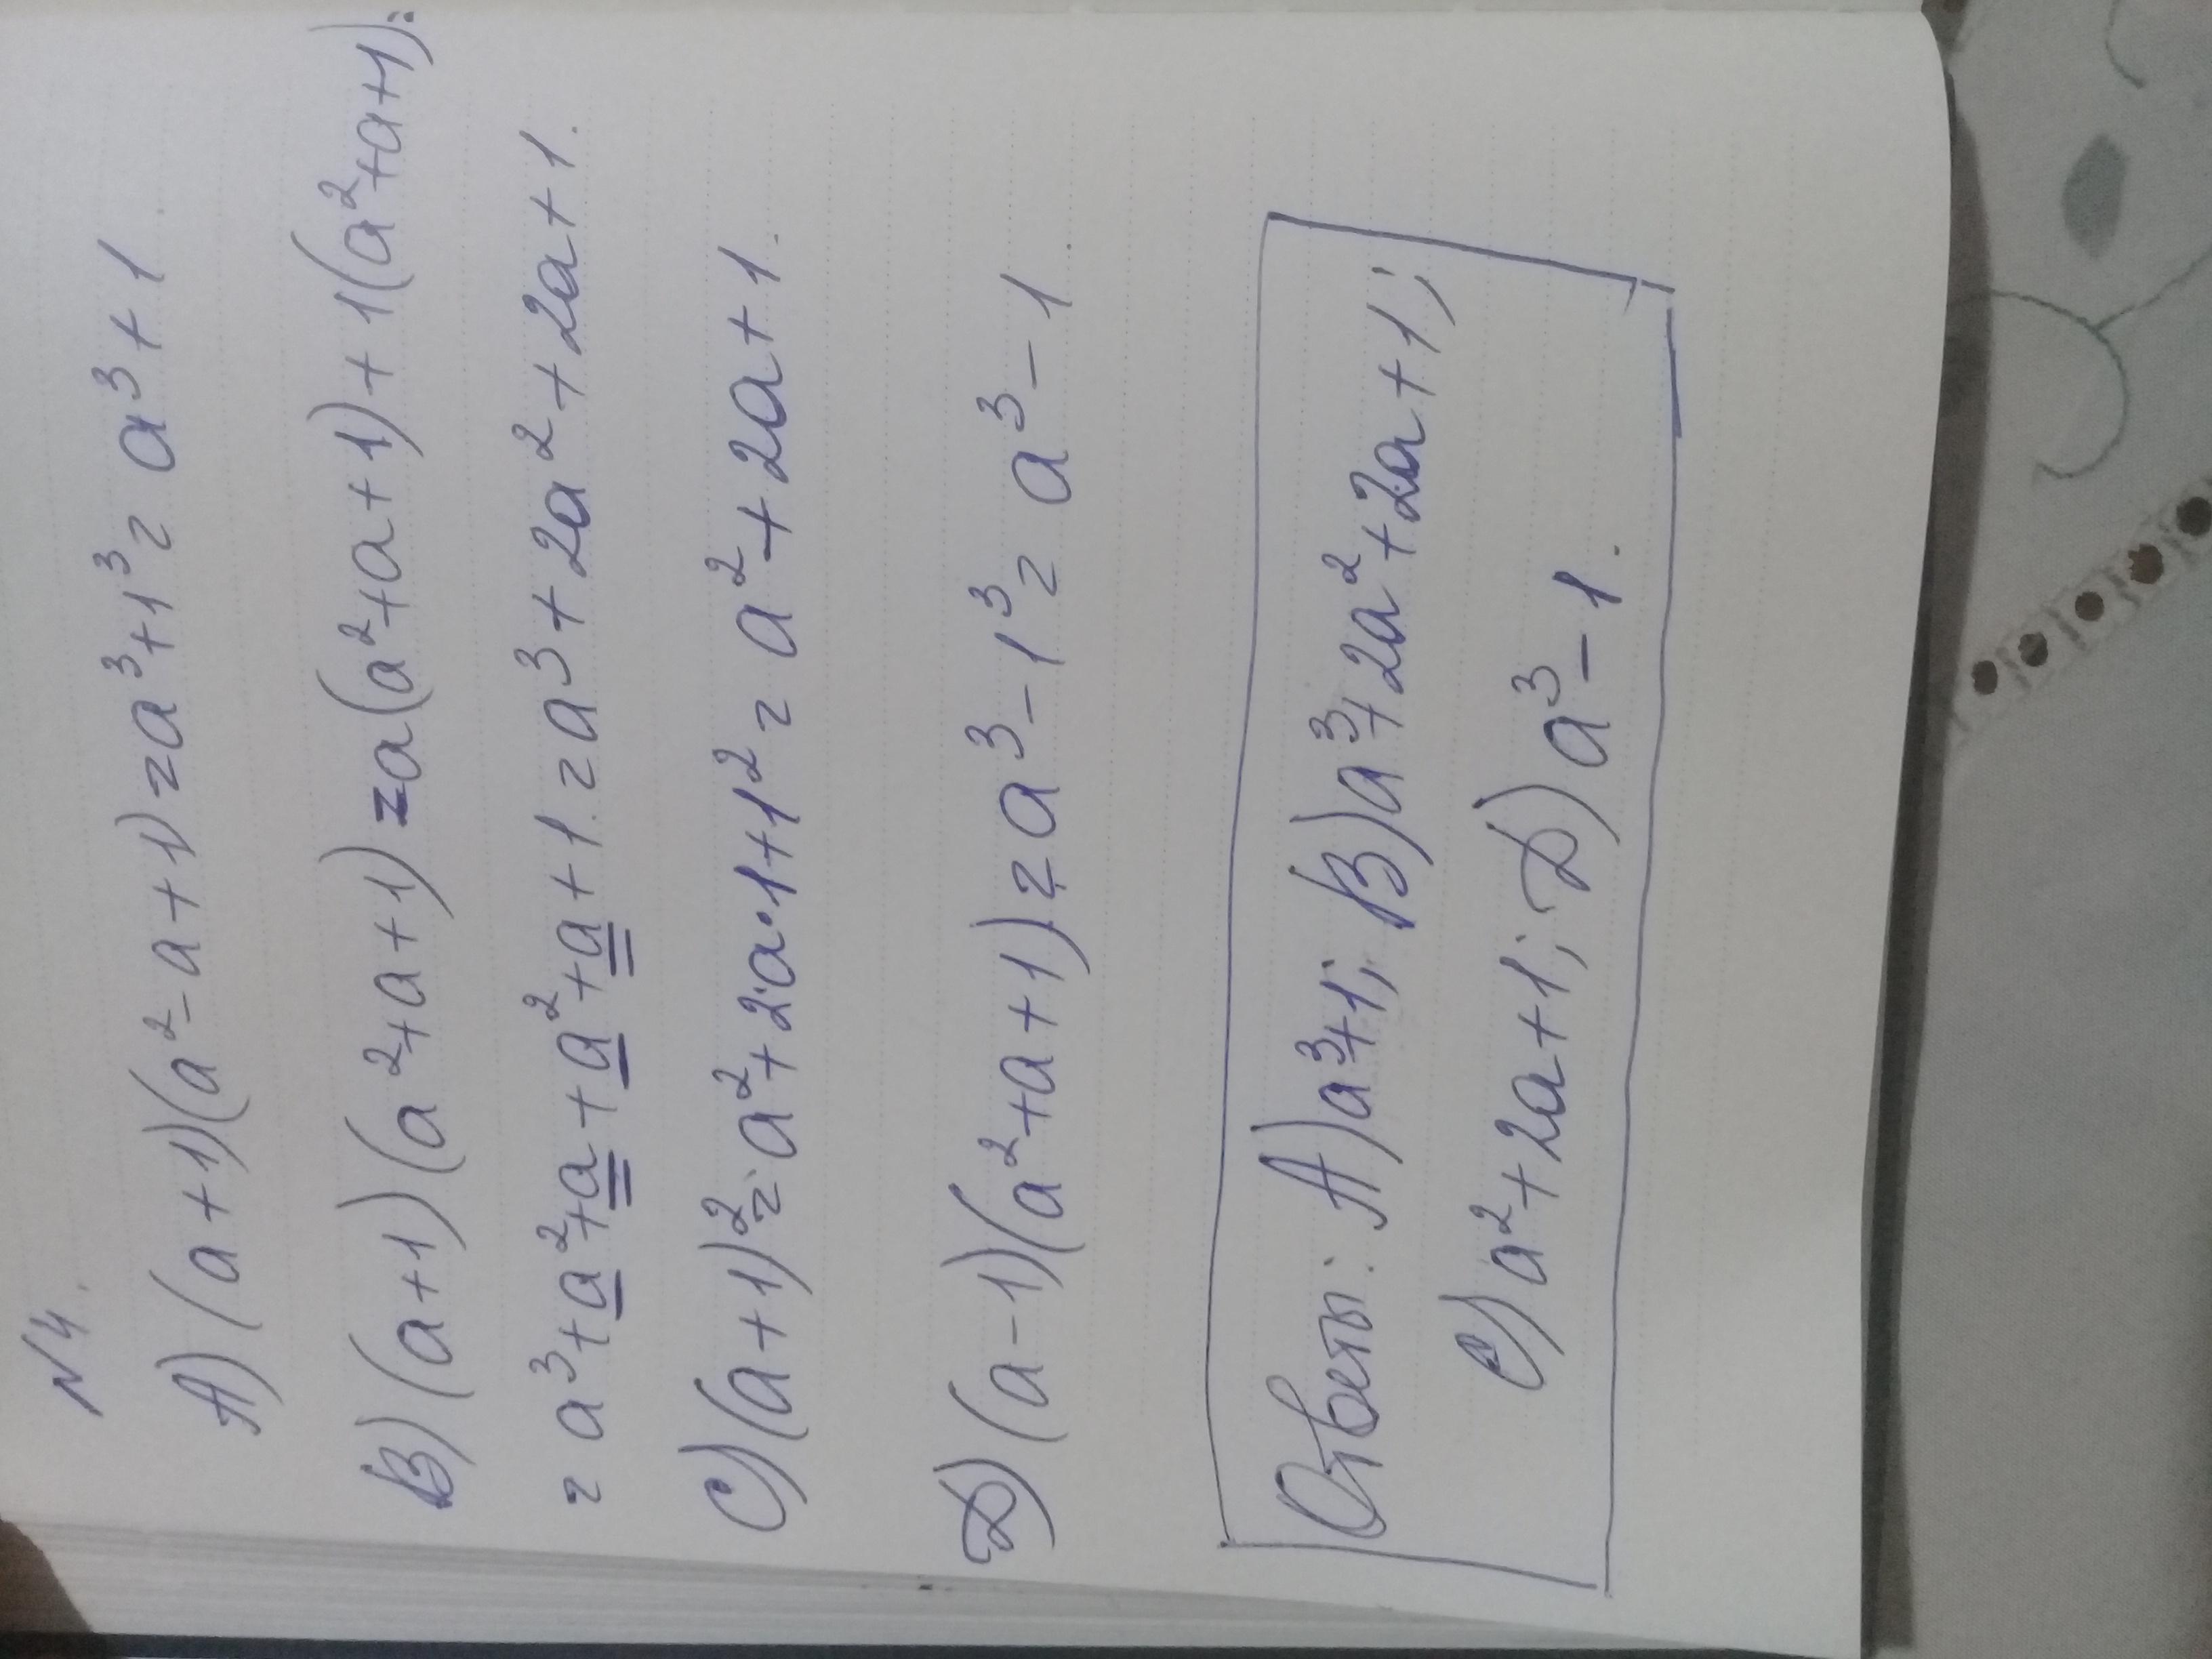 N4.
A) (a+1)(a²-a+1)=a³+1³= a³+1
B) (a+1)(a²+a+1)=a(a²+a+1)+1(a²+a+1)=
= a³+a²+a+a²+a+1.=a³+2a²+2a+1.
C) (a+1)²=a²+2·a·1+1²= a²+2a+1.
D) (a-1)(a²+a+1)=a³-1³= a³-1.
Ответы: A) a³+1; B) a³+2a²+2a+1;
C) a²+2a+1; D) a³-1.